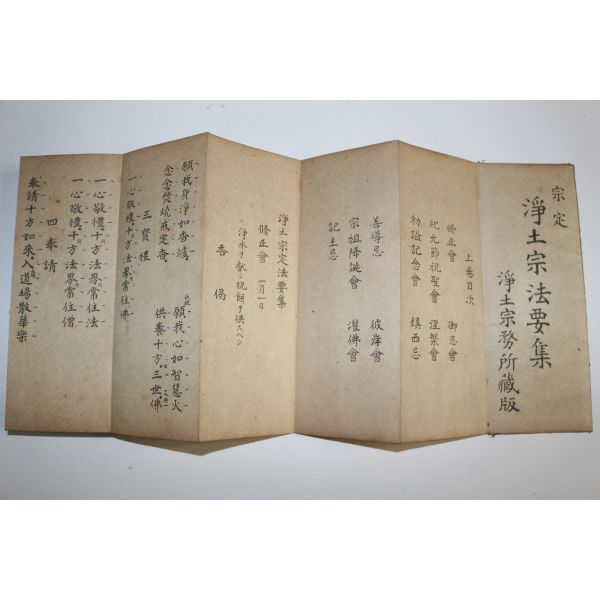 宗定
淨土宗法要集
淨土宗務所藏版
上卷目次
修正會 御忌會
紀元節祝聖會 涅槃會
勅諡記念會 鎮西忌
善導忌 彼岸會
宗祖降誕會 灌佛會
記主忌
淨土宗定法要集
修正會 一月一日
淨水ヲ獻シ祝餅ヲ供スヘシ
香偈
願我身淨如香爐 願我心如智慧火
念念焚燒戒定香 供養十方三世佛
三寶禮
一心敬禮十方法界常住佛
一心敬禮十方法界常住法
一心敬禮十方法界常住僧
四奉請
奉請十方如來入道場散華樂